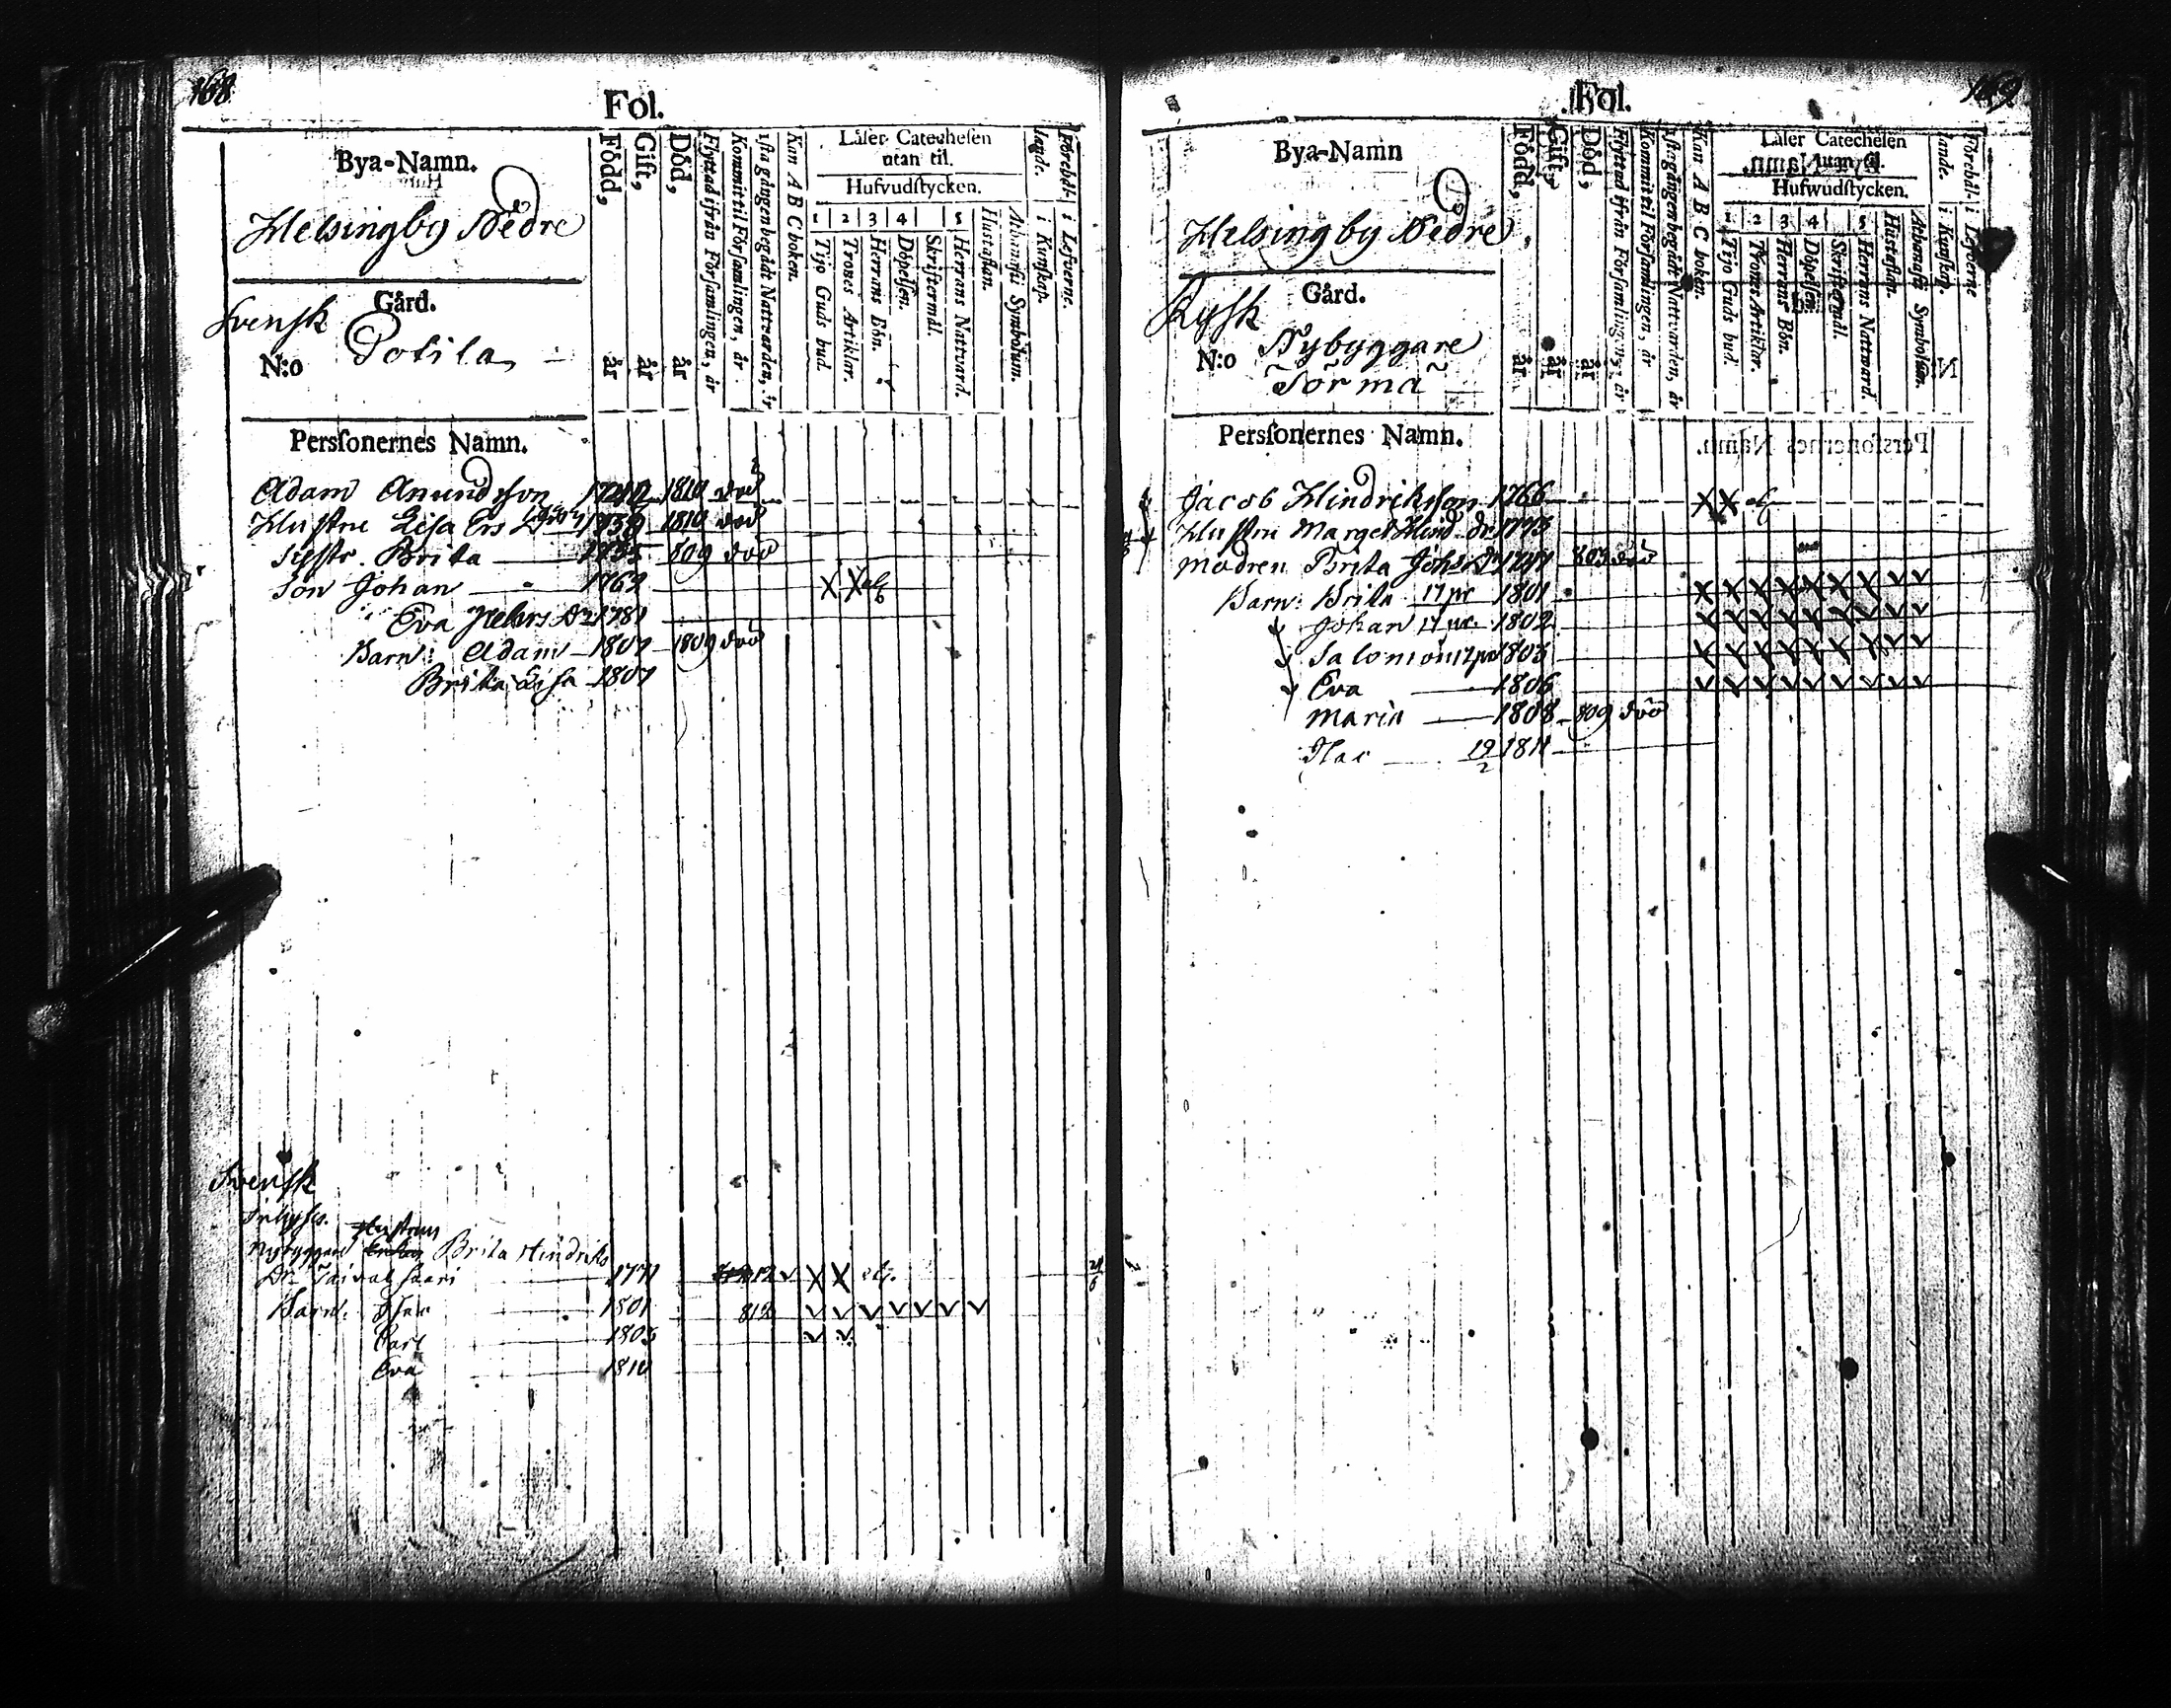 168
Fol.
Bya-Namn.
Helsingby Nedre
Svensk
Gård.
N:o Potila
Född, år
Gift, år
Död, år
Flyttad ifrån Församlingen, år
Kommit til Församlingen, år
1sta gången begådt Nattvarden, år
Kan A B C boken.
Läser Catechesen
utan til.
Hufvudstycken.
1 2 3 4 5
Tijo Guds bud.
Trones Artiklar.
Herrans Bön.
Döpelsen.
Skriftermål.
Herrans Nattvard.
Hustaflan.
Athanasii Symbolum.
Förehållande.
i Kunskap.
i Lefverne.
Personernes Namn.
Adam Anundsson 1810 död
Hustru Lisa Ers 1810 död
Syster Brita 809 död
Son Johan 1762 X X
Eva Pehrs Dr 1781
Barn: Adam 1807 1809 död
Brita Lisa 1807
Svensk
Inhyses.
Nybyggare Hustrun Brita Hindriks
Dr Taivalsaari 1771 12 v X X
Barn: Isac 1801 812 v v v v v v v
Carl 1803 v v
Eva 1810
169
Fol.
Bya-Namn
Helsingby Nedre
Rysk
Gård.
N:o Nybyggare
Törmä
Född, år
Gift, år
Död, år
Flyttad ifrån Församlingen, år
Kommit til Församlingen, år
1sta gången begådt Nattvarden, år
Kan A B C boken.
Läser Catechesen
utan til.
Hufwudstycken.
1 2 3 4 5
Tijo Guds bud.
Trones Artiklar.
Herrans Bön.
Döpelsen.
Skriftermål.
Herrans Nattward.
Hustaflan.
Athanasii Symbolum.
Förehållande.
i Kunskap.
i Lefverne
Personernes Namn.
Jacob Hindriksson 1766 X X
Hustru Marget Hind. dr 1773
Modren Brita Johs Dr 803 död
Barn: Brita 17 pr 1801 X X X X X X X v v
Johan 1802
Salomon 1803
Eva 1806 v v v v v v v v v
Maria 1808 809 död
Isac 19/2 1811